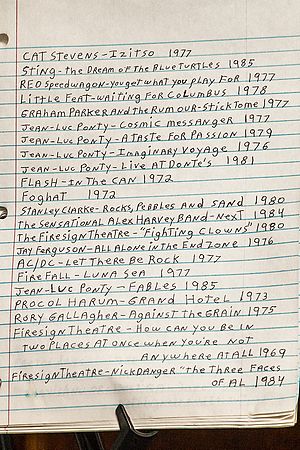 CAT STEVENS - IZITSO 1977
STING - the DREAM OF THE BLUE TURTLES 1985
REO SPEEDWAGON - YOU GET WHAT YOU PLAY FOR 1977
LITTLE FEAT - WAITING FOR COLUMBUS 1978
GRAHAM PARKER AND THE RUMOUR - STICK TO ME 1977
JEAN-LUC PONTY - COSMIC MESSANGER 1977
JEAN-LUC PONTY - A TASTE FOR PASSION 1979
JEAN-LUC PONTY - IMAGINARY VOYAGE 1976
JEAN-LUC PONTY - LIVE AT DONTE'S 1981
FLASH - IN THE CAN 1972
FOGHAT 1972
STANLEY CLARKE - ROCKS, PEBBLES AND SAND 1980
THE SENSATIONAL ALEX HARVEY BAND - NEXT 1984
THE FIRESIGN THEATRE - "FIGHTING CLOWNS" 1980
JAY FERGUSON - ALL ALONE IN THE END ZONE 1976
AC/DC - LET THERE BE ROCK 1977
FIREFALL - LUNA SEA 1977
JEAN-LUC PONTY - FABLES 1985
PROCOL HARUM - GRAND HOTEL 1973
RORY GALLAGHER - AGAINST THE GRAIN 1975
FIRESIGN THEATRE - HOW CAN YOU BE IN
TWO PLACES AT ONCE WHEN YOU'RE NOT
ANYWHERE AT ALL 1969
FIRESIGN THEATRE - NICK DANGER "THE THREE FACES
OF AL 1984